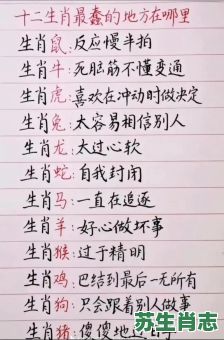 十二生肖最蠢的地方在哪里
生肖鼠:反应慢半拍
生肖牛:死脑筋不懂变通
生肖虎:喜欢在冲动时做决定
生肖兔:太容易相信别人
生肖龙:太过心软
生肖蛇:自我封闭
生肖马:一直在追逐
生肖羊:好心做坏事
生肖猴:过于精明
生肖鸡:巴结到最后一无所有
生肖狗:只会跟着别人做事
生肖猪:傻傻地过日子
苏生肖志